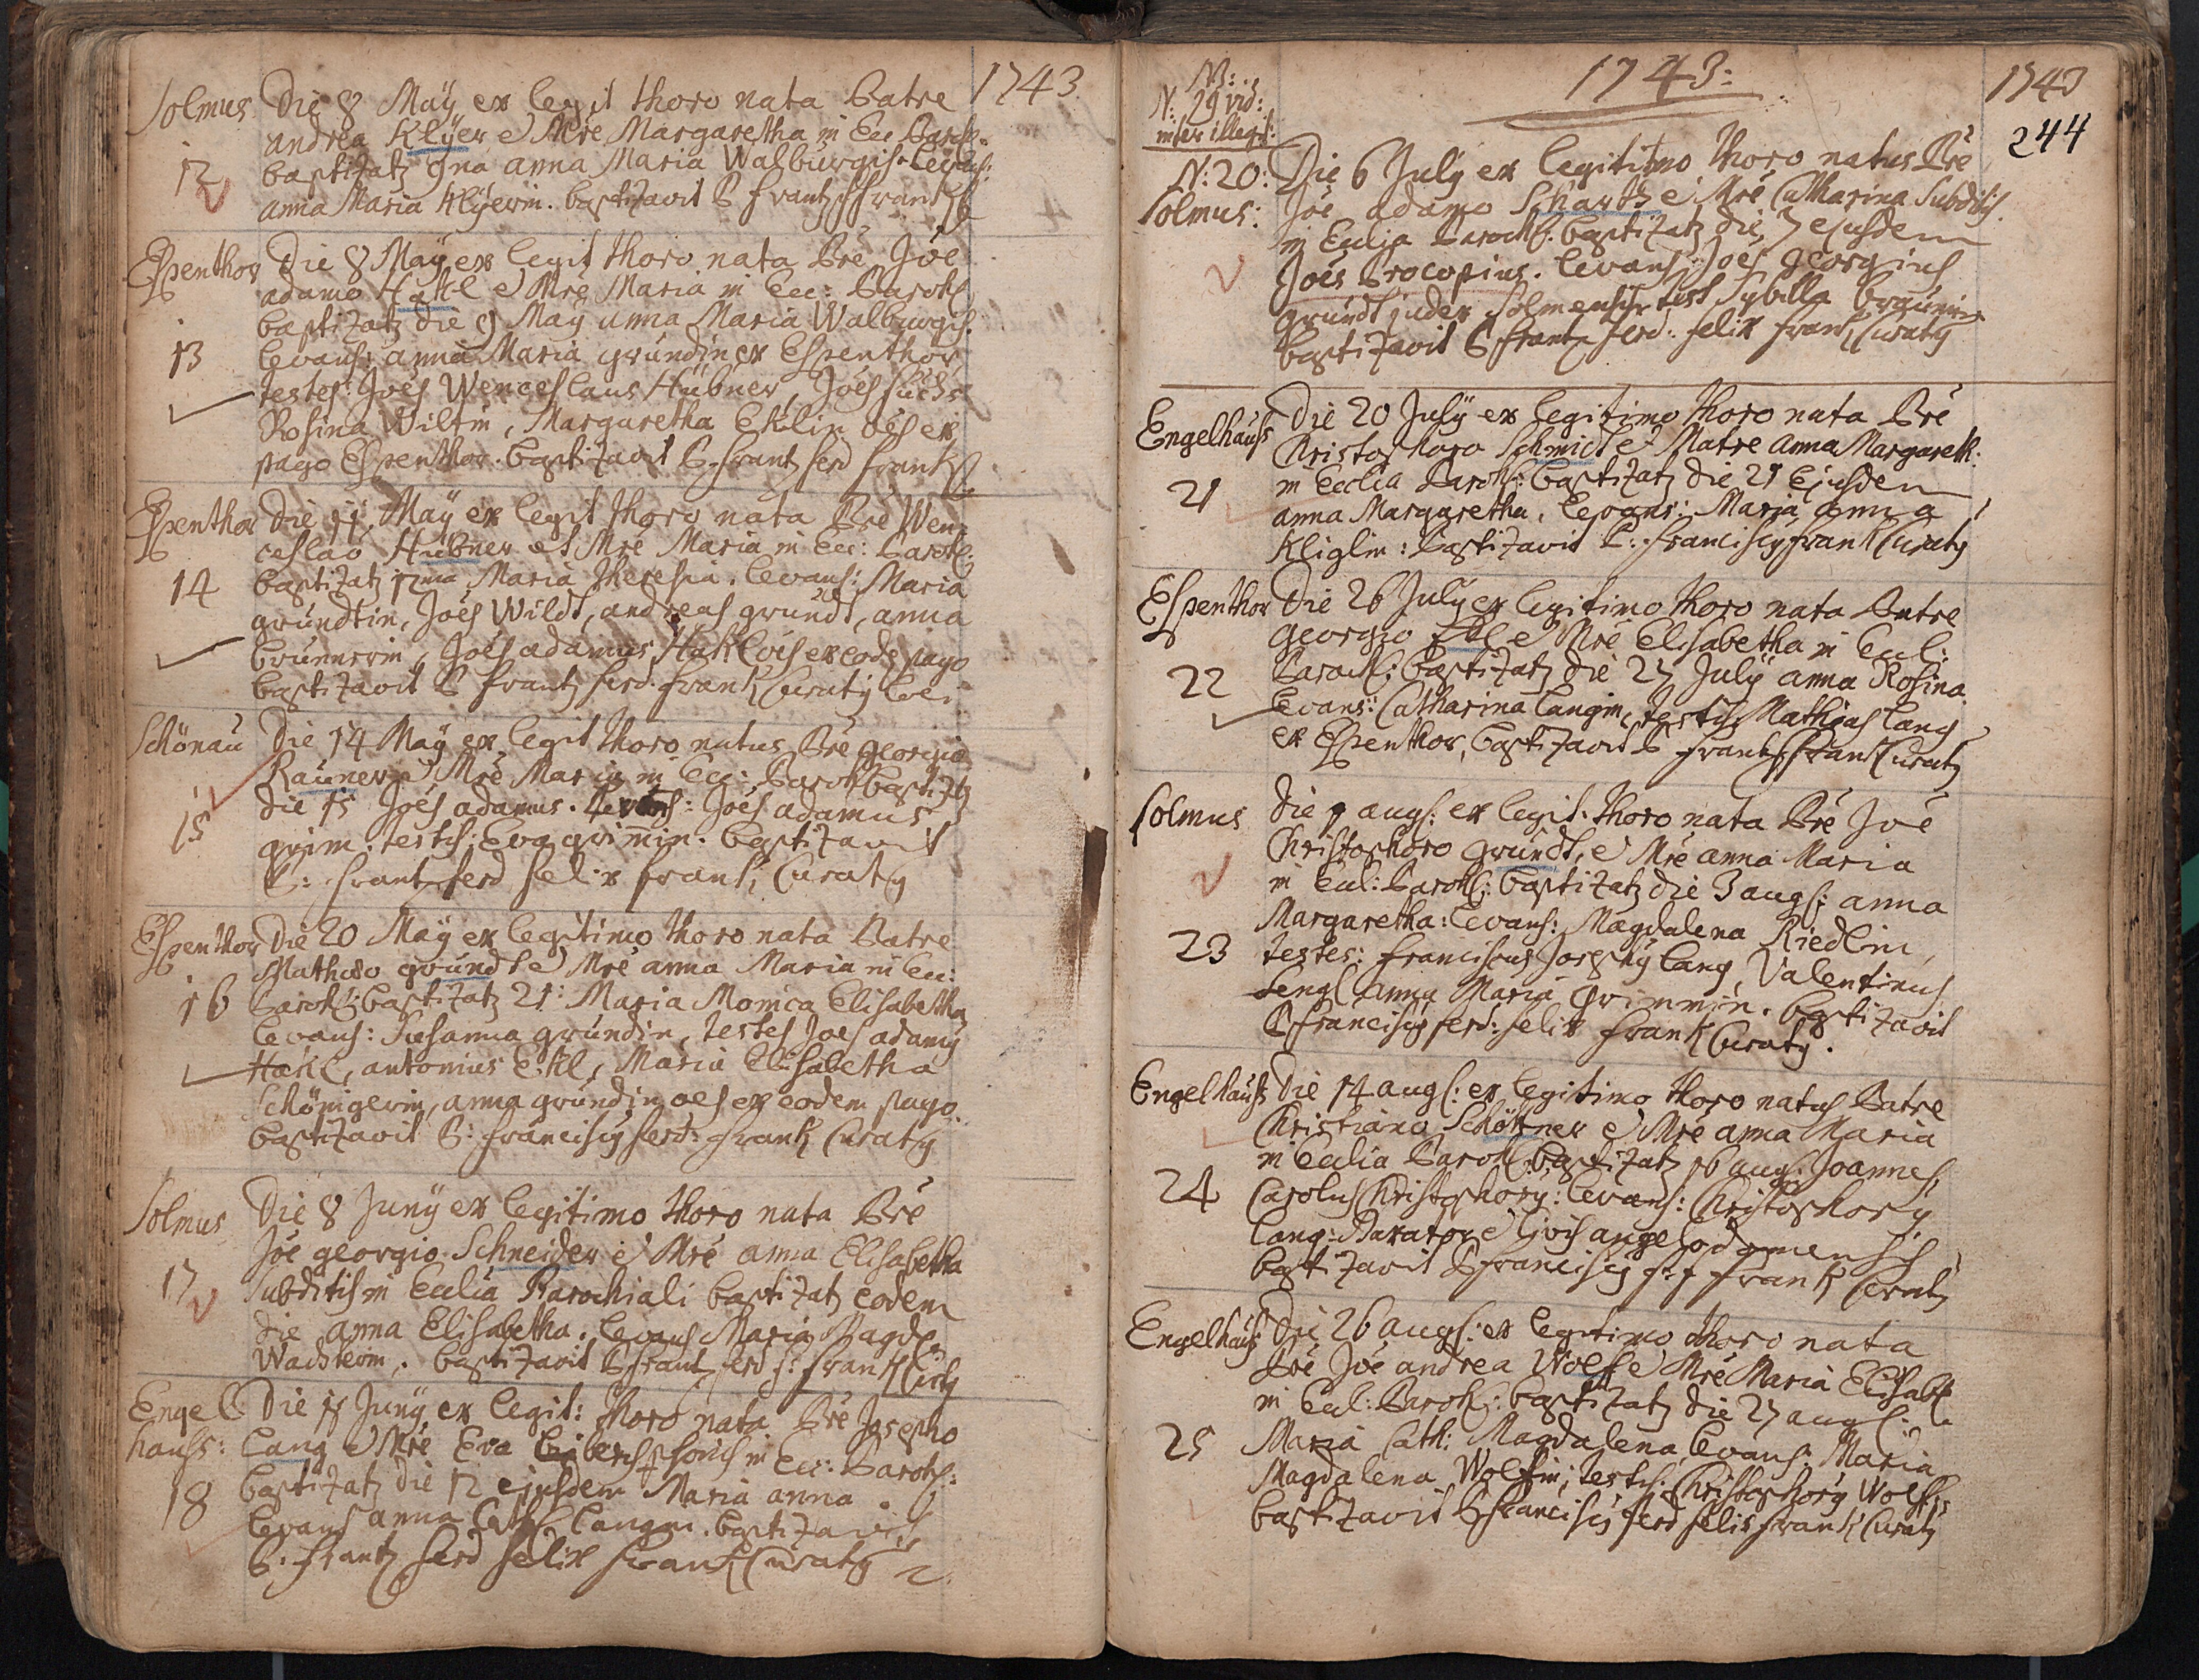 1743
Solmus Die 8 Maÿ ex legit thoro nata Patre
andrea Klÿer et Mre Margaretha in Ecc Paroch:
12 baptizatz 9na anna Maria Walburgis. Levans:
anna Maria Klÿerin. baptizavit P frantz ff frantz
Espenthor Die 8 Maÿ ex legit thoro nata Pre Joe
adamo Hakl et Mre Maria in Ecc: Paroch
baptizatz die 9 Maÿ anna Maria Walburgis.
13 Levans: anna Maria gründin ex Espenthor
testes: Joes Wenceslaus Hübner, Joes füchs
Rosina Wiltin, Margaretha Eklin oes ex
pago Espenthor. baptizavit P. frantz ferd frank
Espenthor Die 11. Maÿ ex legit thoro nata Pre Wen
ceslao Hübner et Mre Maria in Ecc: Paroch:
14 baptizatz 12ma Maria Theresia. Levans: Maria
gründtin, Joes Wildt, andreas gründt, anna
brünnerin, Joes adamus Hakl oes ex eode pago
baptizavit P frantz ferd. frank Curatÿ loci
Schönau Die 14 Maÿ ex legit thoro natus Pre georgio
Rauner et Mre Maria in Ecc: Paroch baptizatz
15 die 15 Joes adamus. Levans: Joes adamus
grim. testes: Eva grimin. baptizavit
P: frantz ferd felix frank, Curatÿ
Espenthor Die 20 Maÿ ex legitimo thoro nata Patre
Matheo gründt et Mre anna Maria in Ecc:
16 Paroch: baptizatz 21: Maria Monica Elisabetha
Levans: Susanna gründin, testes Joes adamÿ
Hakl, antonius Ekl, Maria Elisabetha
Schönigerin, anna gründin oes ex eodem pago.
baptizavit P: franciscÿ ferd: frank Curatÿ
Solmus Die 8 Junÿ ex legitimo thoro nata Pre
Joe georgio Schneider et Mre anna Elisabetha
17 subditis in Ecclia Parochiali baptizatz eodem
die anna Elisabetha. Levans Maria Magdl
baptizavit P frantz ferd f: frank
Engel Die 11 Junÿ ex legit: thoro nata Pre Josepho
hauss: Lang et Mre Eva in Ecc: Paroch:
18 baptizatz die 12 ejusdem Maria anna.
Levans anna Cath Langin. baptizavit
P. frantz ferd felix frank Curatÿ
NB:
N: 29 vid:
inter illegit:
1743:
1743
244
N: 20: Die 6 Julÿ ex legitimo thoro natus Pre
Solmus: Joe adamo Schartz et Mre Catharina Subditis
in Ecclia Paroch: baptizatz die 7 ejusdem
Joes Procopius. Levans: Joes georgius
gründt judex Solmensis test Sybilla braunin
baptizavit P frantz ferd: felix frank Curatÿ
Engelhauss Die 20 Julÿ ex legitimo thoro nata Pre
Christophoro Schmidt et Matre anna Margareth:
21 in Ecclia Paroch: baptizatz die 21 Ejusdem
anna Margaretha. Levans: Maria anna
Kliglin: baptizavit P: franciscÿ frank Curatÿ
Espenthor Die 26 Julÿ ex legitimo thoro nata Patre
georgio Ekl et Mre Elisabetha in Eccl:
22 Paroch: baptizatz die 27 Julÿ anna Rosina
Levans: Catharina Langin, testes Mathias Lang
ex Espenthor, baptizavit P frantz ff frank Curatÿ
Solmus Die aug: ex legit. thoro nata Pre Joe
Christophoro gründt, et Mre anna Maria
in Eccl: Paroch: baptizatz die 3 aug: anna
Margaretha: Levans: Magdalena Riedlin,
23 testes: franciscus Josephÿ Lang, Valentinus
Lengl anna Maria grimmin. baptizavit
P franciscÿ ferd: felix frank Curatÿ.
Engelhauss Die 14 aug: ex legitimo thoro natus Patre
Christiano Schöttner et Mre anna Maria
in Ecclia Paroch: baptizatz 16 aug: Joannes
24 Carolus Christophorÿ: Levans: Christophorÿ
Lang: et Civis angelodomensis
baptizavit P franciscÿ f: f frank Curatÿ
Engelhauss Die 26 aug: ex legitimo thoro nata
Pre Joe andrea Wolf et Mre Maria Elisabt
in Eccl: Paroch: baptizatz die 27 aug:
25 Maria Cath: Magdalena, Levans: Maria
Magdalena Wolfin; testes: Christophorÿ Wolf;
baptizavit P franciscÿ ferd felix frank Curatÿ